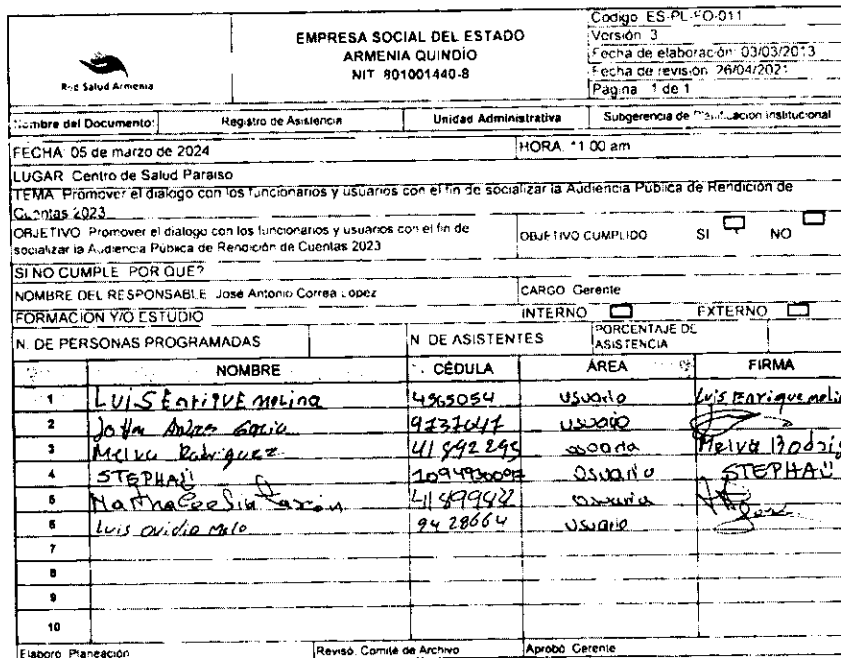 Red Salud Armenia
EMPRESA SOCIAL DEL ESTADO
ARMENIA QUINDÍO
NIT 801001440-8
Código ES-PL-FO-011
Versión 3
Fecha de elaboración: 03/03/2013
Fecha de revisión 26/04/2021
Página 1 de 1
Nombre del Documento: Registro de Asistencia Unidad Administrativa Subgerencia de Planificación Institucional
FECHA: 05 de marzo de 2024 HORA. 11 00 am
LUGAR Centro de Salud Paraiso
TEMA Promover el dialogo con los funcionarios y usuarios con el fin de socializar la Audiencia Pública de Rendición de
Cuentas 2023
OBJETIVO Promover el dialogo con los funcionarios y usuarios con el fin de
socializar la Audiencia Pública de Rendición de Cuentas 2023
OBJETIVO CUMPLIDO SI NO
SI NO CUMPLE POR QUE?
NOMBRE DEL RESPONSABLE José Antonio Correa Lopez CARGO Gerente
FORMACION Y/O ESTUDIO INTERNO EXTERNO
N. DE PERSONAS PROGRAMADAS N DE ASISTENTES PORCENTAJE DE
ASISTENCIA
NOMBRE CÉDULA ÁREA FIRMA
1 LUIS EnriqUE molina 4565054 usuario Luis Enrique molin
2 Andres usuario
3 Melva Rodriguez 41892295 Melva Rodrig
4 STEPHAÜ Usuario STEPHAÜ
5
6 Luis ovidio Melo 9428664 usuario
7
8
9
10
Elaboró Planeación Revisó. Comité de Archivo Aprobó Gerente